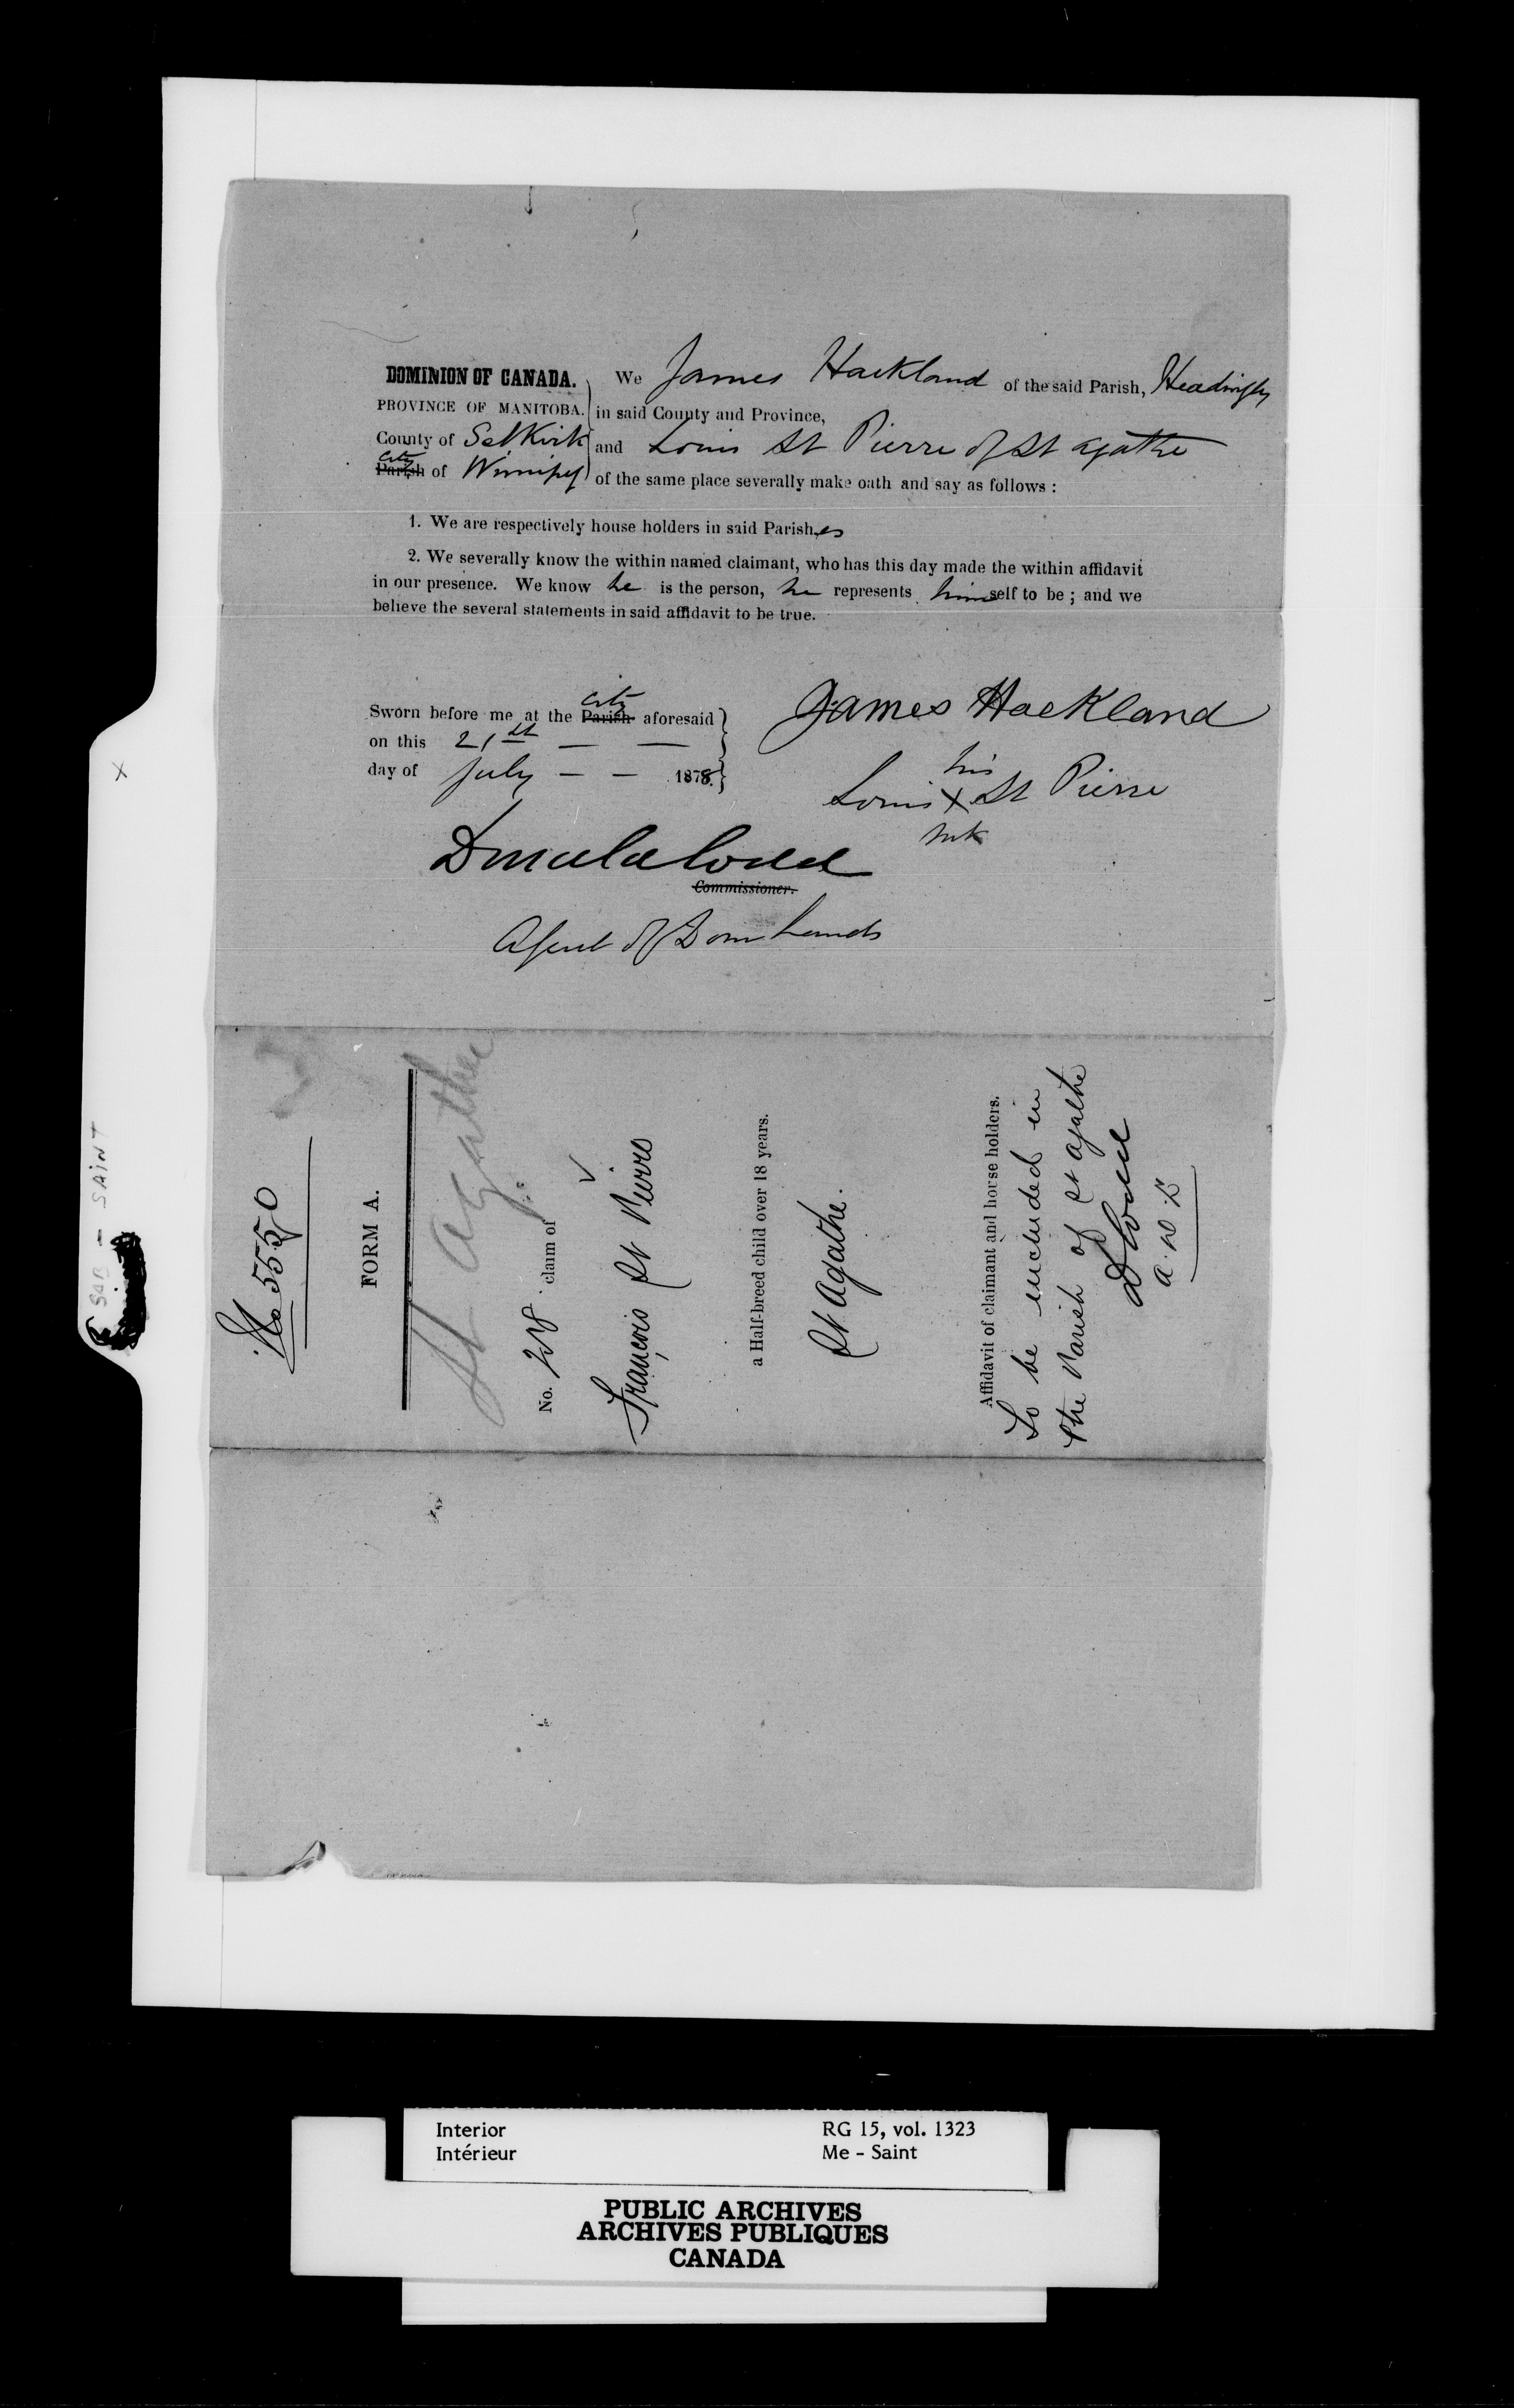 DOMINION OF CANADA.
PROVINCE OF MANITOBA.
County of Selkirk
City
Parish of Winnipeg
We James Hackland of the said Parish, Headingly
in said County and Province,
and Louis St Pierre of St Agathe
of the same place severally make oath and say as follows :
1. We are respectively house holders in said Parishes
2. We severally know the within named claimant, who has this day made the within affidavit
in our presence. We know he is the person, he represents himself to be ; and we
believe the several statements in said affidavit to be true.
City
Sworn before me at the Parish aforesaid
on this 21st
day of July 1878.
James Hackland
his
Louis X St Pierre
mk
Commissioner.
Agent of Dom Lands
X
SAB - SAINT
No 5550
FORM A.
St Agathe
No. claim of
François St Pierre
a Half-breed child over 18 years.
St Agathe.
Affidavit of claimant and horse holders.
To be included in
the Parish of St Agathe
Interior
Intérieur
RG 15, vol. 1323
Me - Saint
PUBLIC ARCHIVES
ARCHIVES PUBLIQUES
CANADA